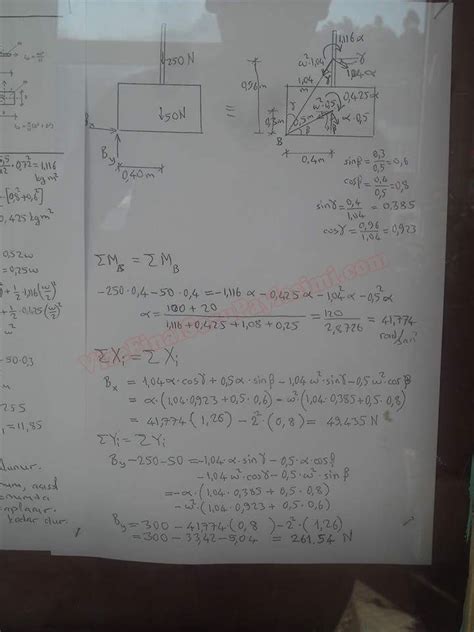 250N
50N
Bx
By
0.40m
=
1,116 α
ω²1.04
1,04 α
1.04 m
γ
0.96 m
0.3m
0.5m
ω²0.5
0,425 α
α·0.5
β
B
0.4m
sinβ = 0.3/0.5 = 0.6
cosβ = 0.4/0.5 = 0.8
sinγ = 0.4/1.04 = 0.385
cosγ = 0.96/1.04 = 0.923
kg m²
0,425 kgm²
0.52w
= 0.25w
ΣM_B = ΣM_B
-250·0.4-50·0.4 = -1,116 α - 0.425 α - 1,04² α - 0.5² α
α = (100 + 20)/(1,116 + 0,425 + 1,08 + 0,25) = 120/2,8726 = 41,774 rad/san²
ΣXi = ΣXi
Bx = 1.04 α·cosγ + 0.5 α·sinβ - 1.04 ω²·sinγ - 0.5 ω² cosβ
= α·(1.04·0.923 + 0.5·0.6) - ω²(1.04·0.385 + 0.5·0.8)
= 41.774 (1.26) - 2²·(0,8) = 49.435 N
ΣYi = ΣYi
By - 250 - 50 = -1.04·α·sinγ - 0.5·α·cosβ
-1.04·ω²cosγ - 0.5·ω²·sinβ
= -α·(1.04·0.385 + 0.5·0.8)
-ω²·(1.04·0.923 + 0.5·0.6)
By = 300 - 41.774(0.8) - 2²·(1,26)
= 300 - 33,42 - 5,04 = 261.54 N